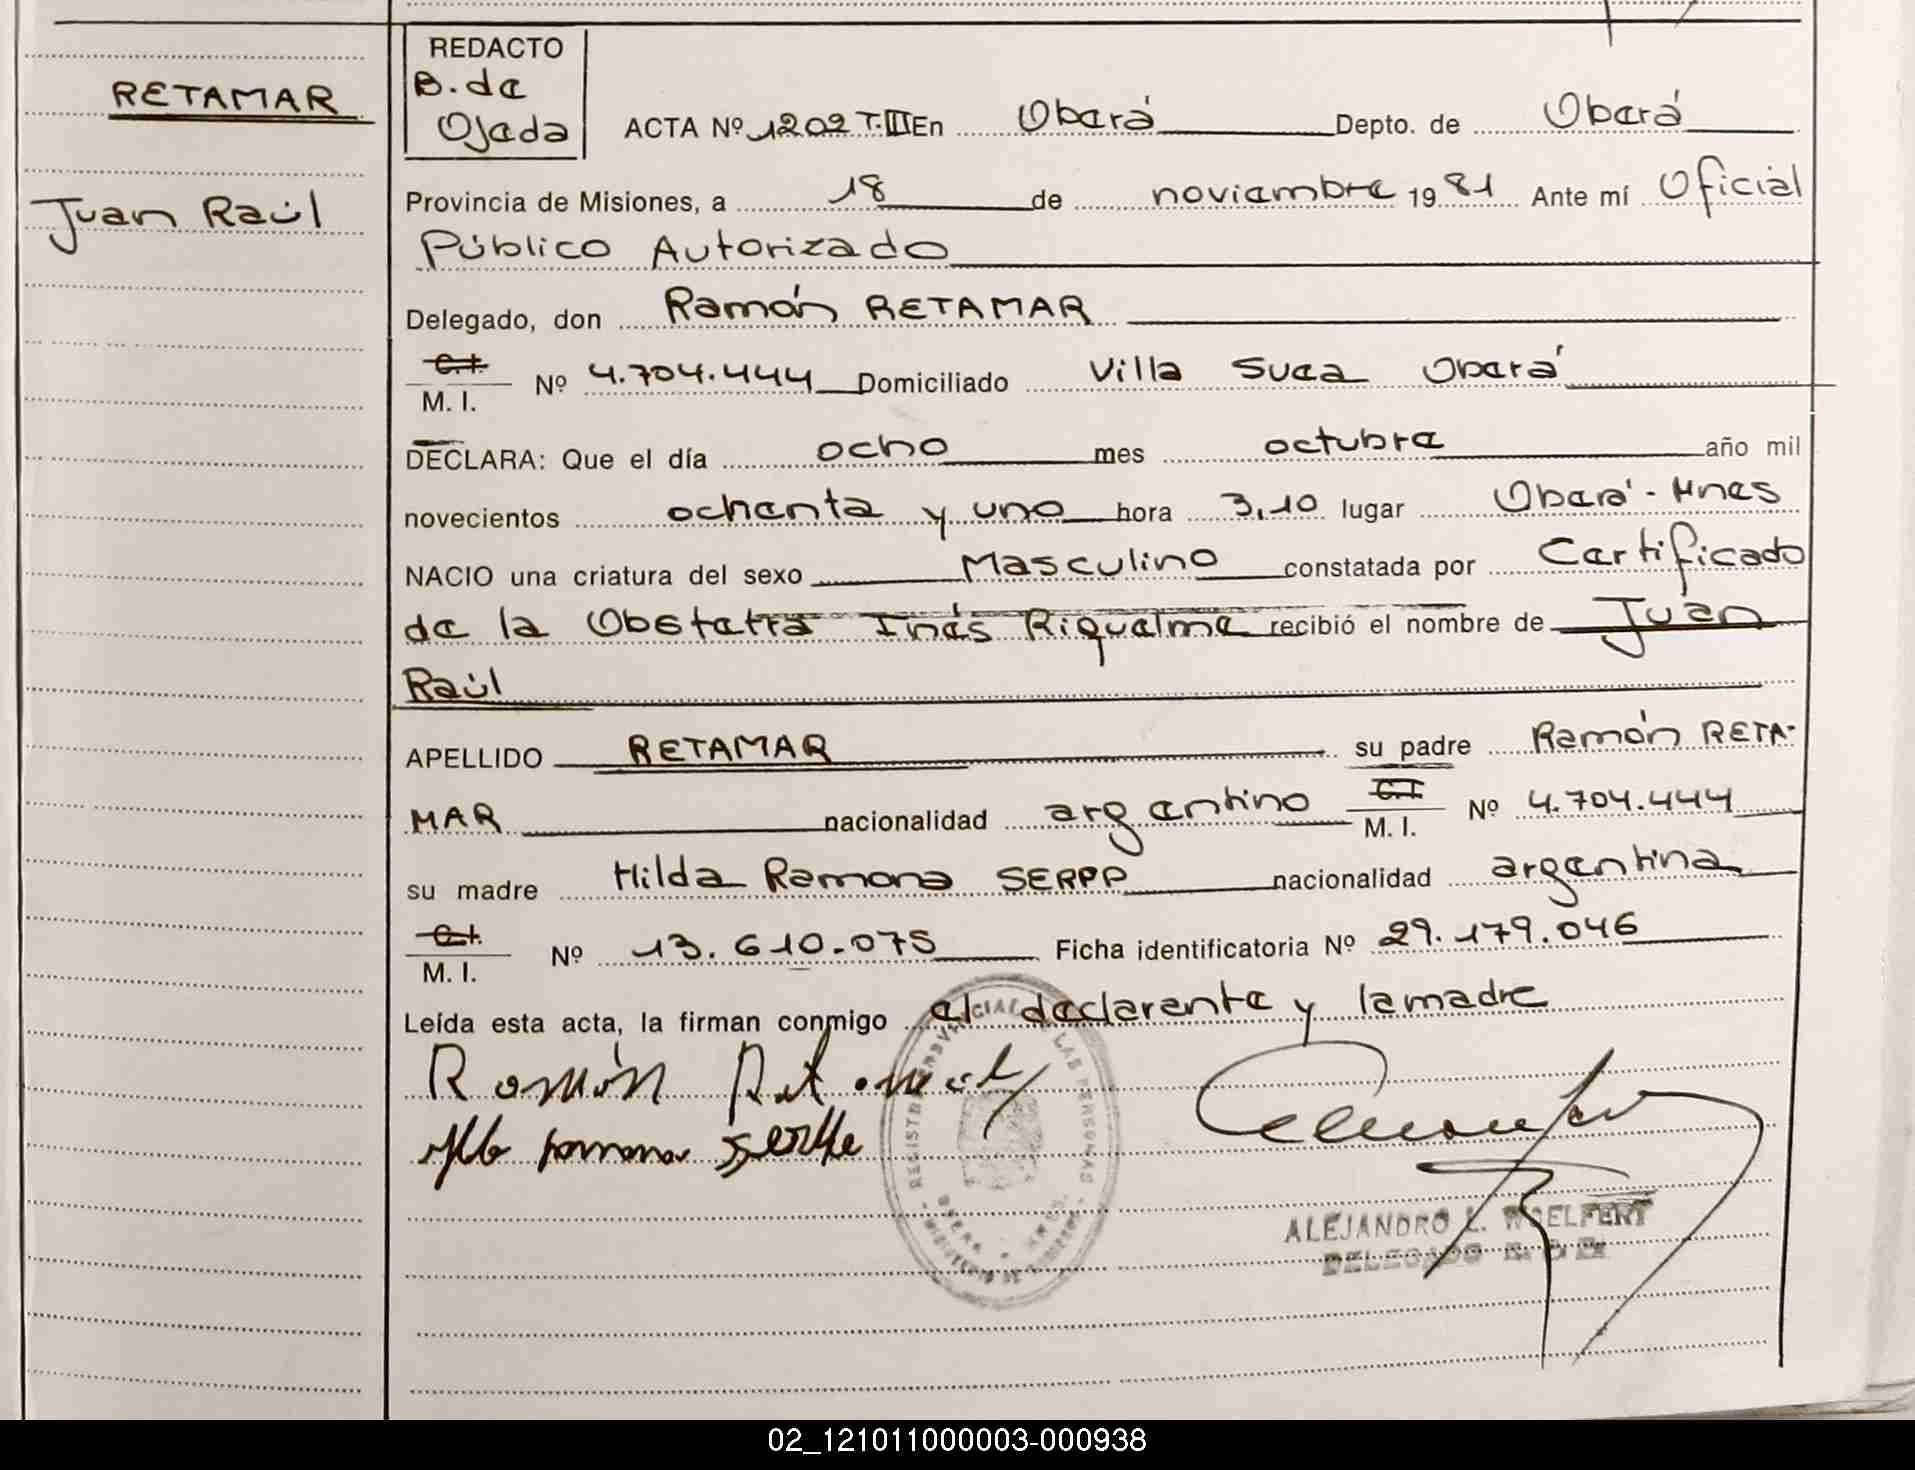 RETAMAR
Juan Raúl
REDACTO
B. de
Ojeda
ACTA Nº 1202 T.III En Oberá Depto. de Oberá
Provincia de Misiones, a 18 de noviembre 1981 Ante mí Oficial
Público Autorizado
Delegado, don Ramón RETAMAR
C.I.
M. I. Nº 4.704.444 Domiciliado Villa Suea Oberá
DECLARA: Que el día ocho mes octubre año mil
novecientos ochenta y uno hora 3,10 lugar Oberá - Mnes
NACIO una criatura del sexo Masculino constatada por Certificado
de la Obstetra Inés Riquelme recibió el nombre de Juan
Raúl
APELLIDO RETAMAR su padre Ramón RETA-
MAR nacionalidad argentino C.I. M. I. Nº 4.704.444
su madre Hilda Ramona SERPP nacionalidad argentina
C.I.
M. I. Nº 13.610.075 Ficha identificatoria Nº 29.179.046
Leída esta acta, la firman conmigo el declarente y la madre
Ramón
ALEJANDRO L. WOELFERT
DELEGADO
02_121011000003-000938